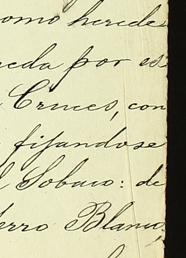 como herede
eda por es
Cruces, con
fijandose
l Sobaco: de
erro Blanco